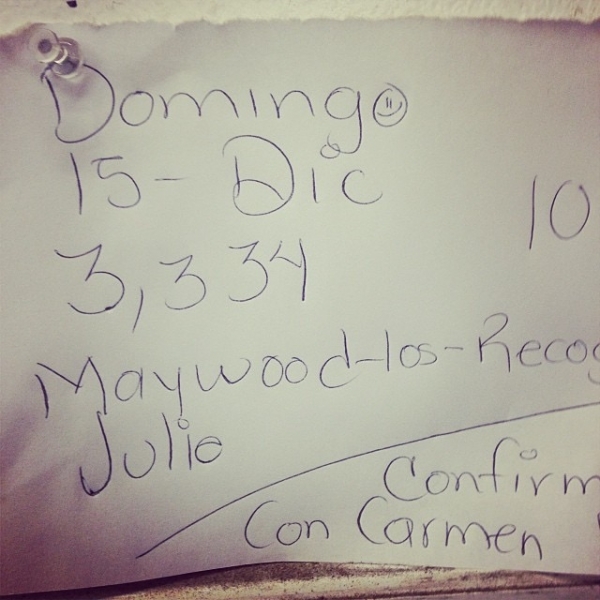 Domingo
15 - Dic
10
3,334
Maywood-los-Recog
Julio
Confirm
Con Carmen